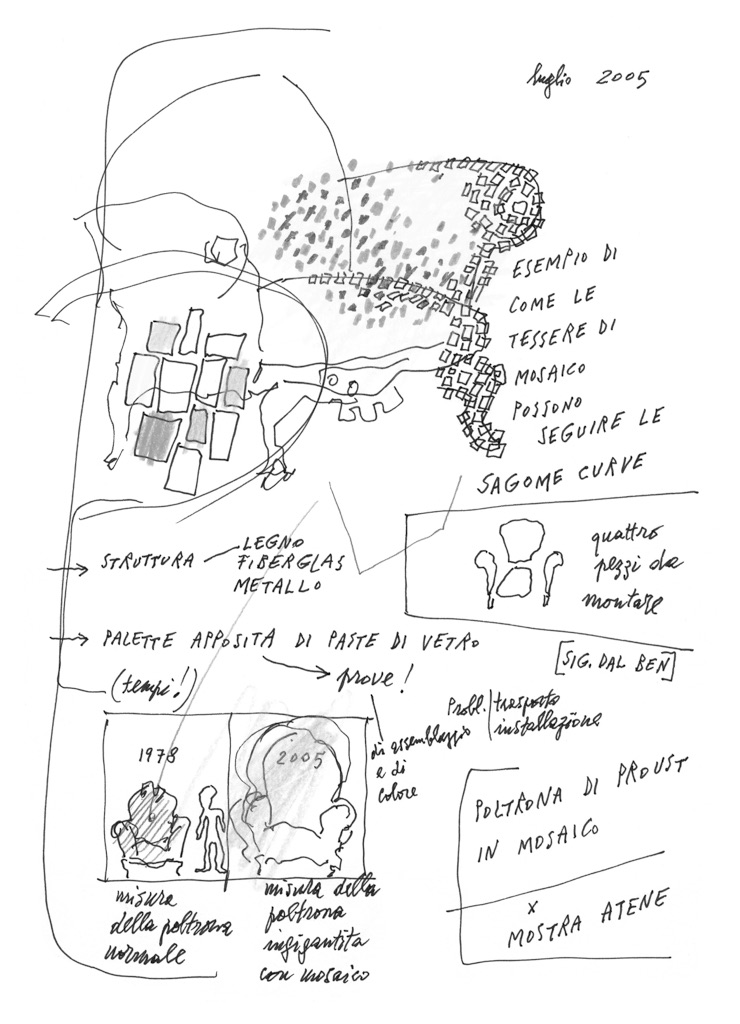 luglio 2005
ESEMPIO DI
COME LE
TESSERE DI
MOSAICO
POSSONO
SEGUIRE LE
SAGOME CURVE
STRUTTURA
LEGNO
FIBERGLAS
METALLO
quattro
pezzi da
montare
PALETTE APPOSITA DI PASTE DI VETRO
(tempi!)
prove!
[SIG. DAL BEN]
Probl. trasporto
installazione
di assemblaggio
e di
colore
1978
2005
misura
della poltrona
normale
misura della
poltrona
ingigantita
con mosaico
POLTRONA DI PROUST
IN MOSAICO
x
MOSTRA ATENE